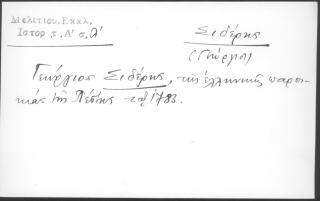 Μελετίου. Εκκλ.
Ιστορ τ. Α' σ. λ'
Σιδέρης
(Γεώργιος)
Γεώργιος Σιδέρης, της ελληνικής παροι-
κίας της Πέστης τω 1783.